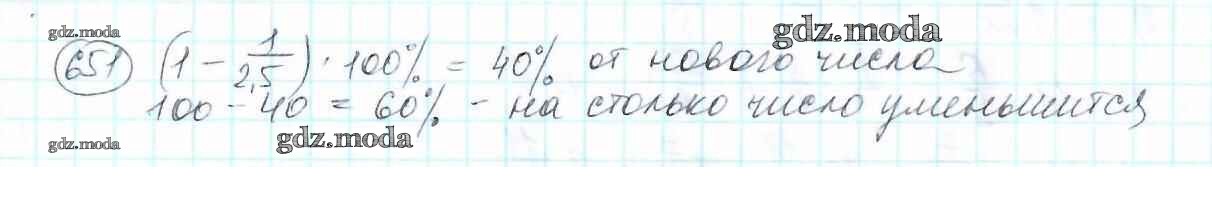 gdz.moda
gdz.moda
651 (1 - 1/2,5) · 100% = 40% от нового числа
100 - 40 = 60% - на столько число уменьшится
gdz.moda
gdz.moda